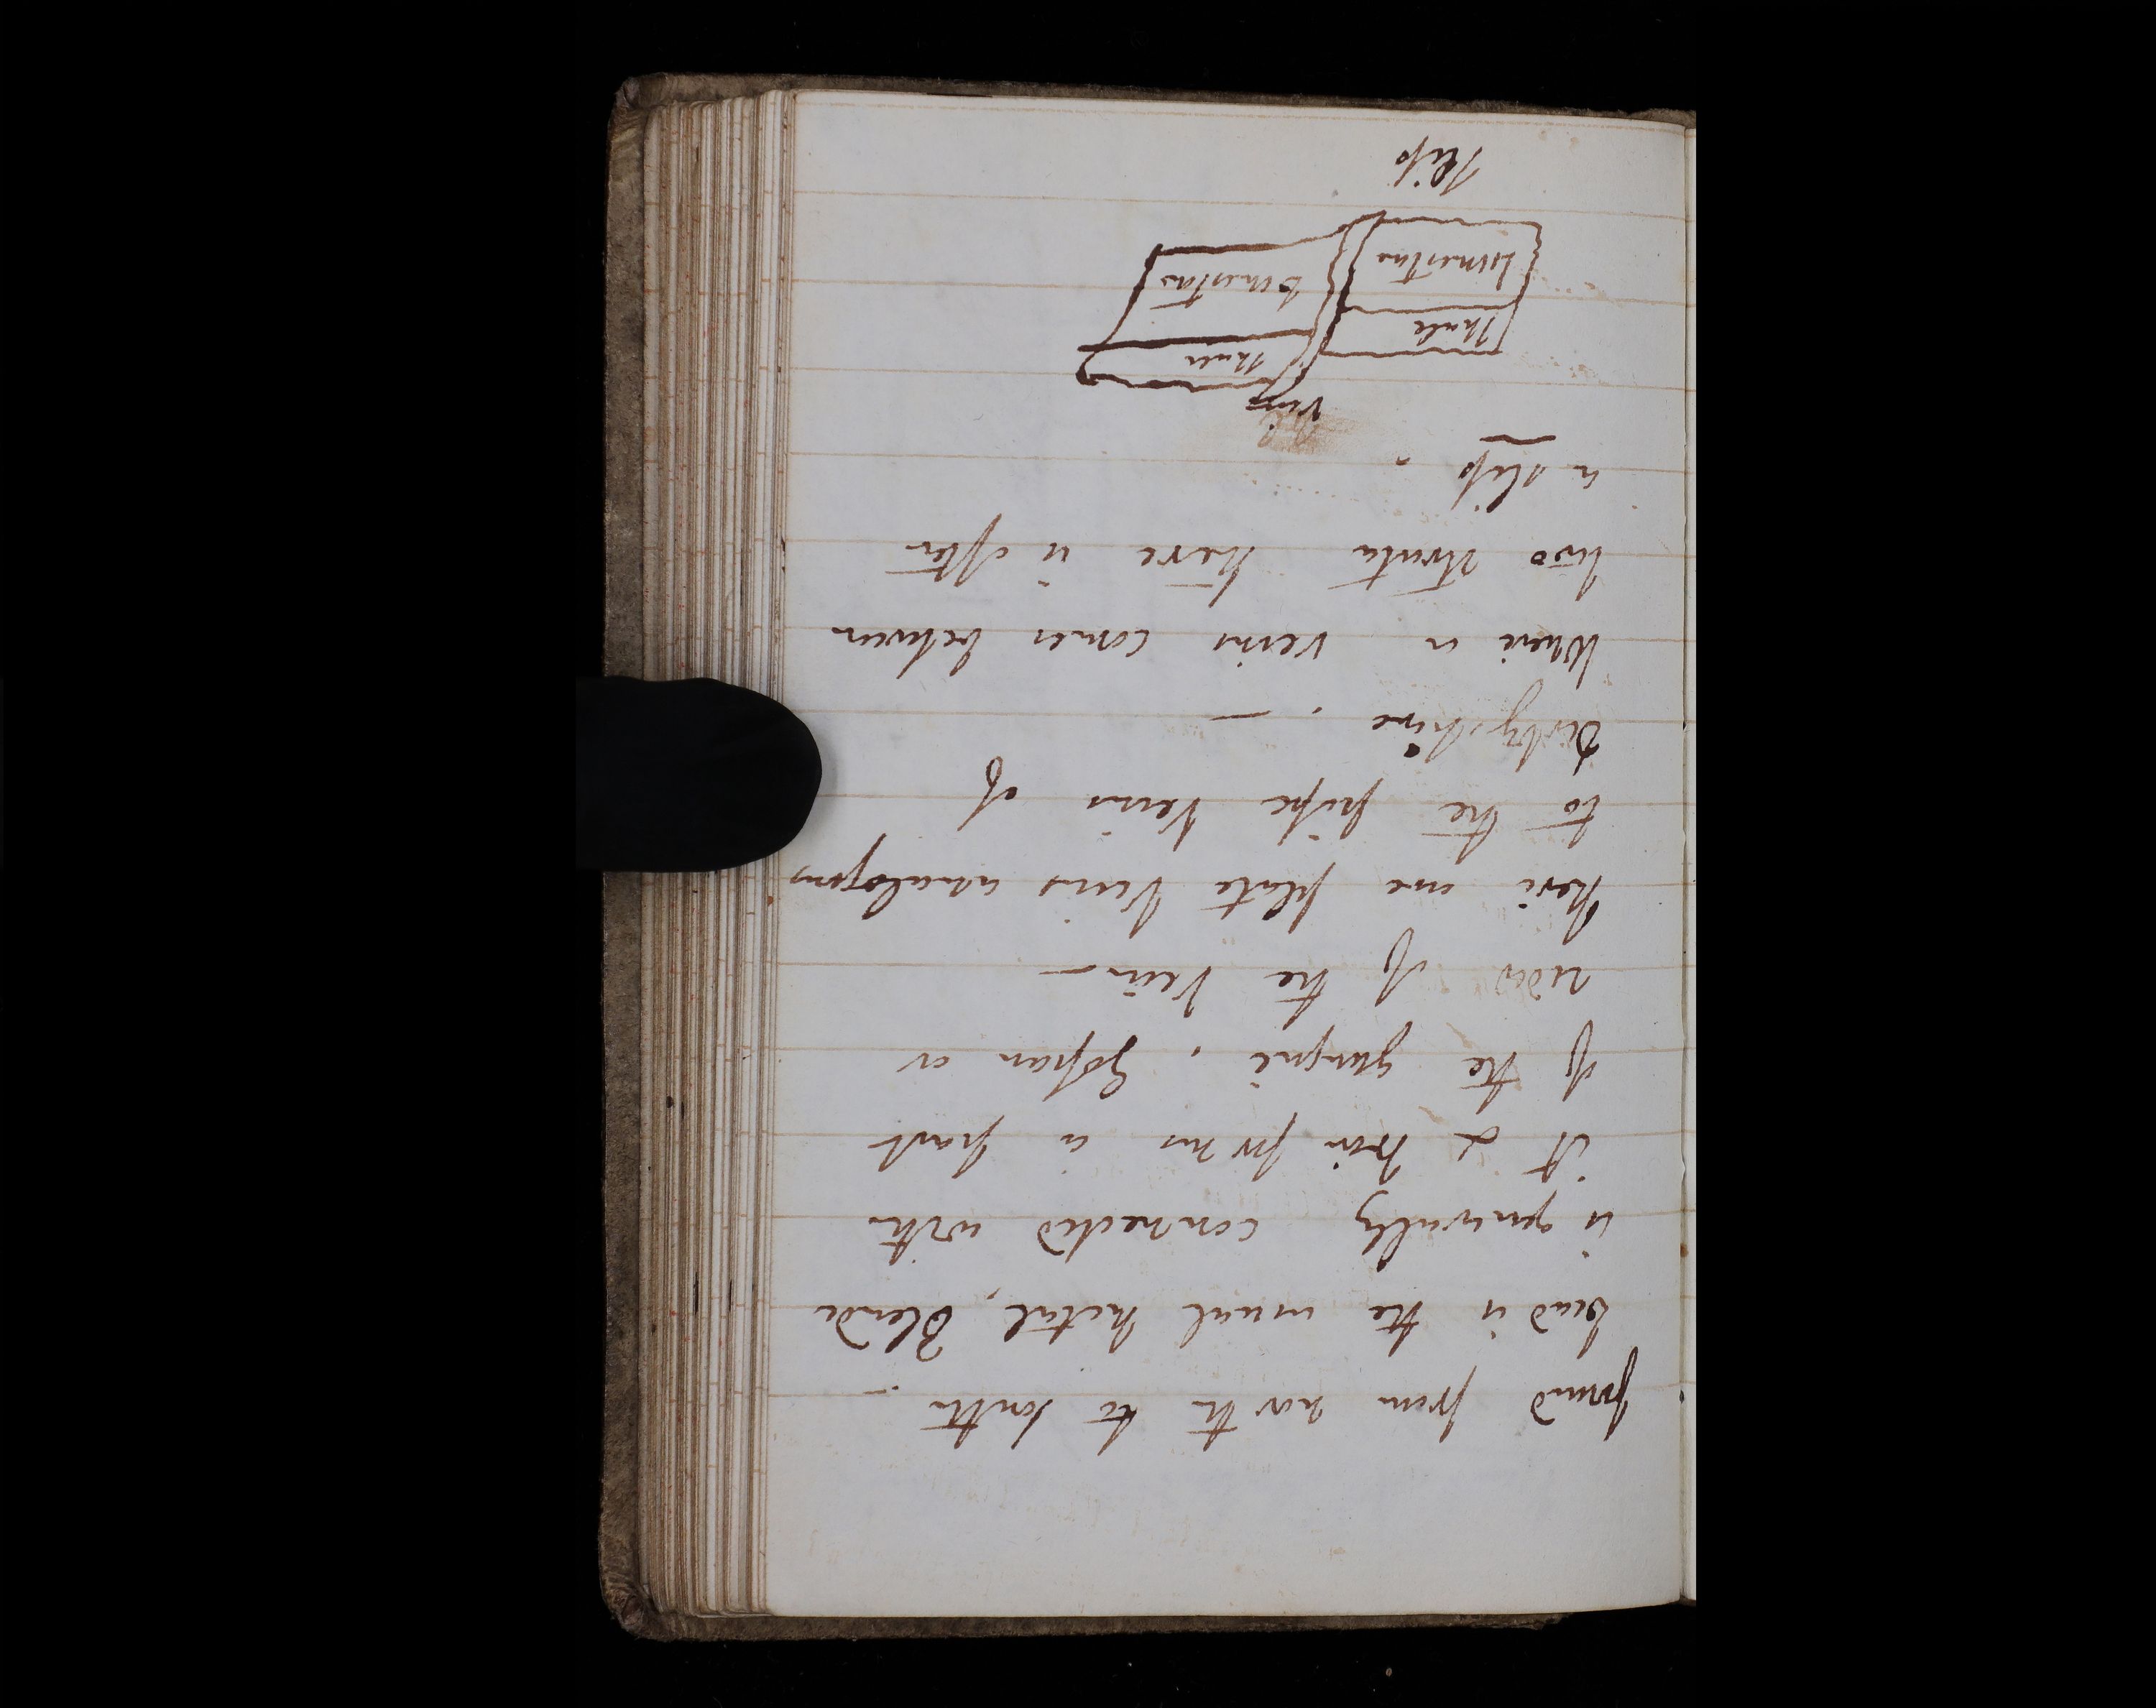 found from north to south. -
Lead is the usual metal, Blende
is generally connected with
it & this forms a part
of the gangue, Gossan or
rider of the Vein —
There are plate Veins analogous
to the pipe Veins of
Derbyshire. —
Where a veins comes between
two strata there is often
a slip.
Vein
Shale
Shale
Limestone
Limestone
Slip